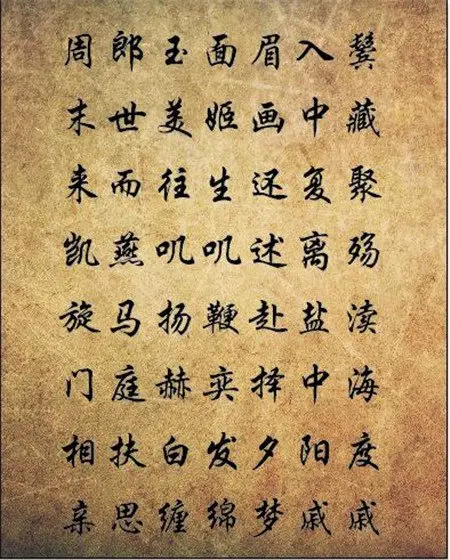 周郎玉面眉入鬓
末世美姬画中藏
来而往生还复聚
凯燕叽叽述离殇
旋马扬鞭赴盐渎
门庭赫奕择中海
相扶白发夕阳度
亲思缠绵梦戚戚